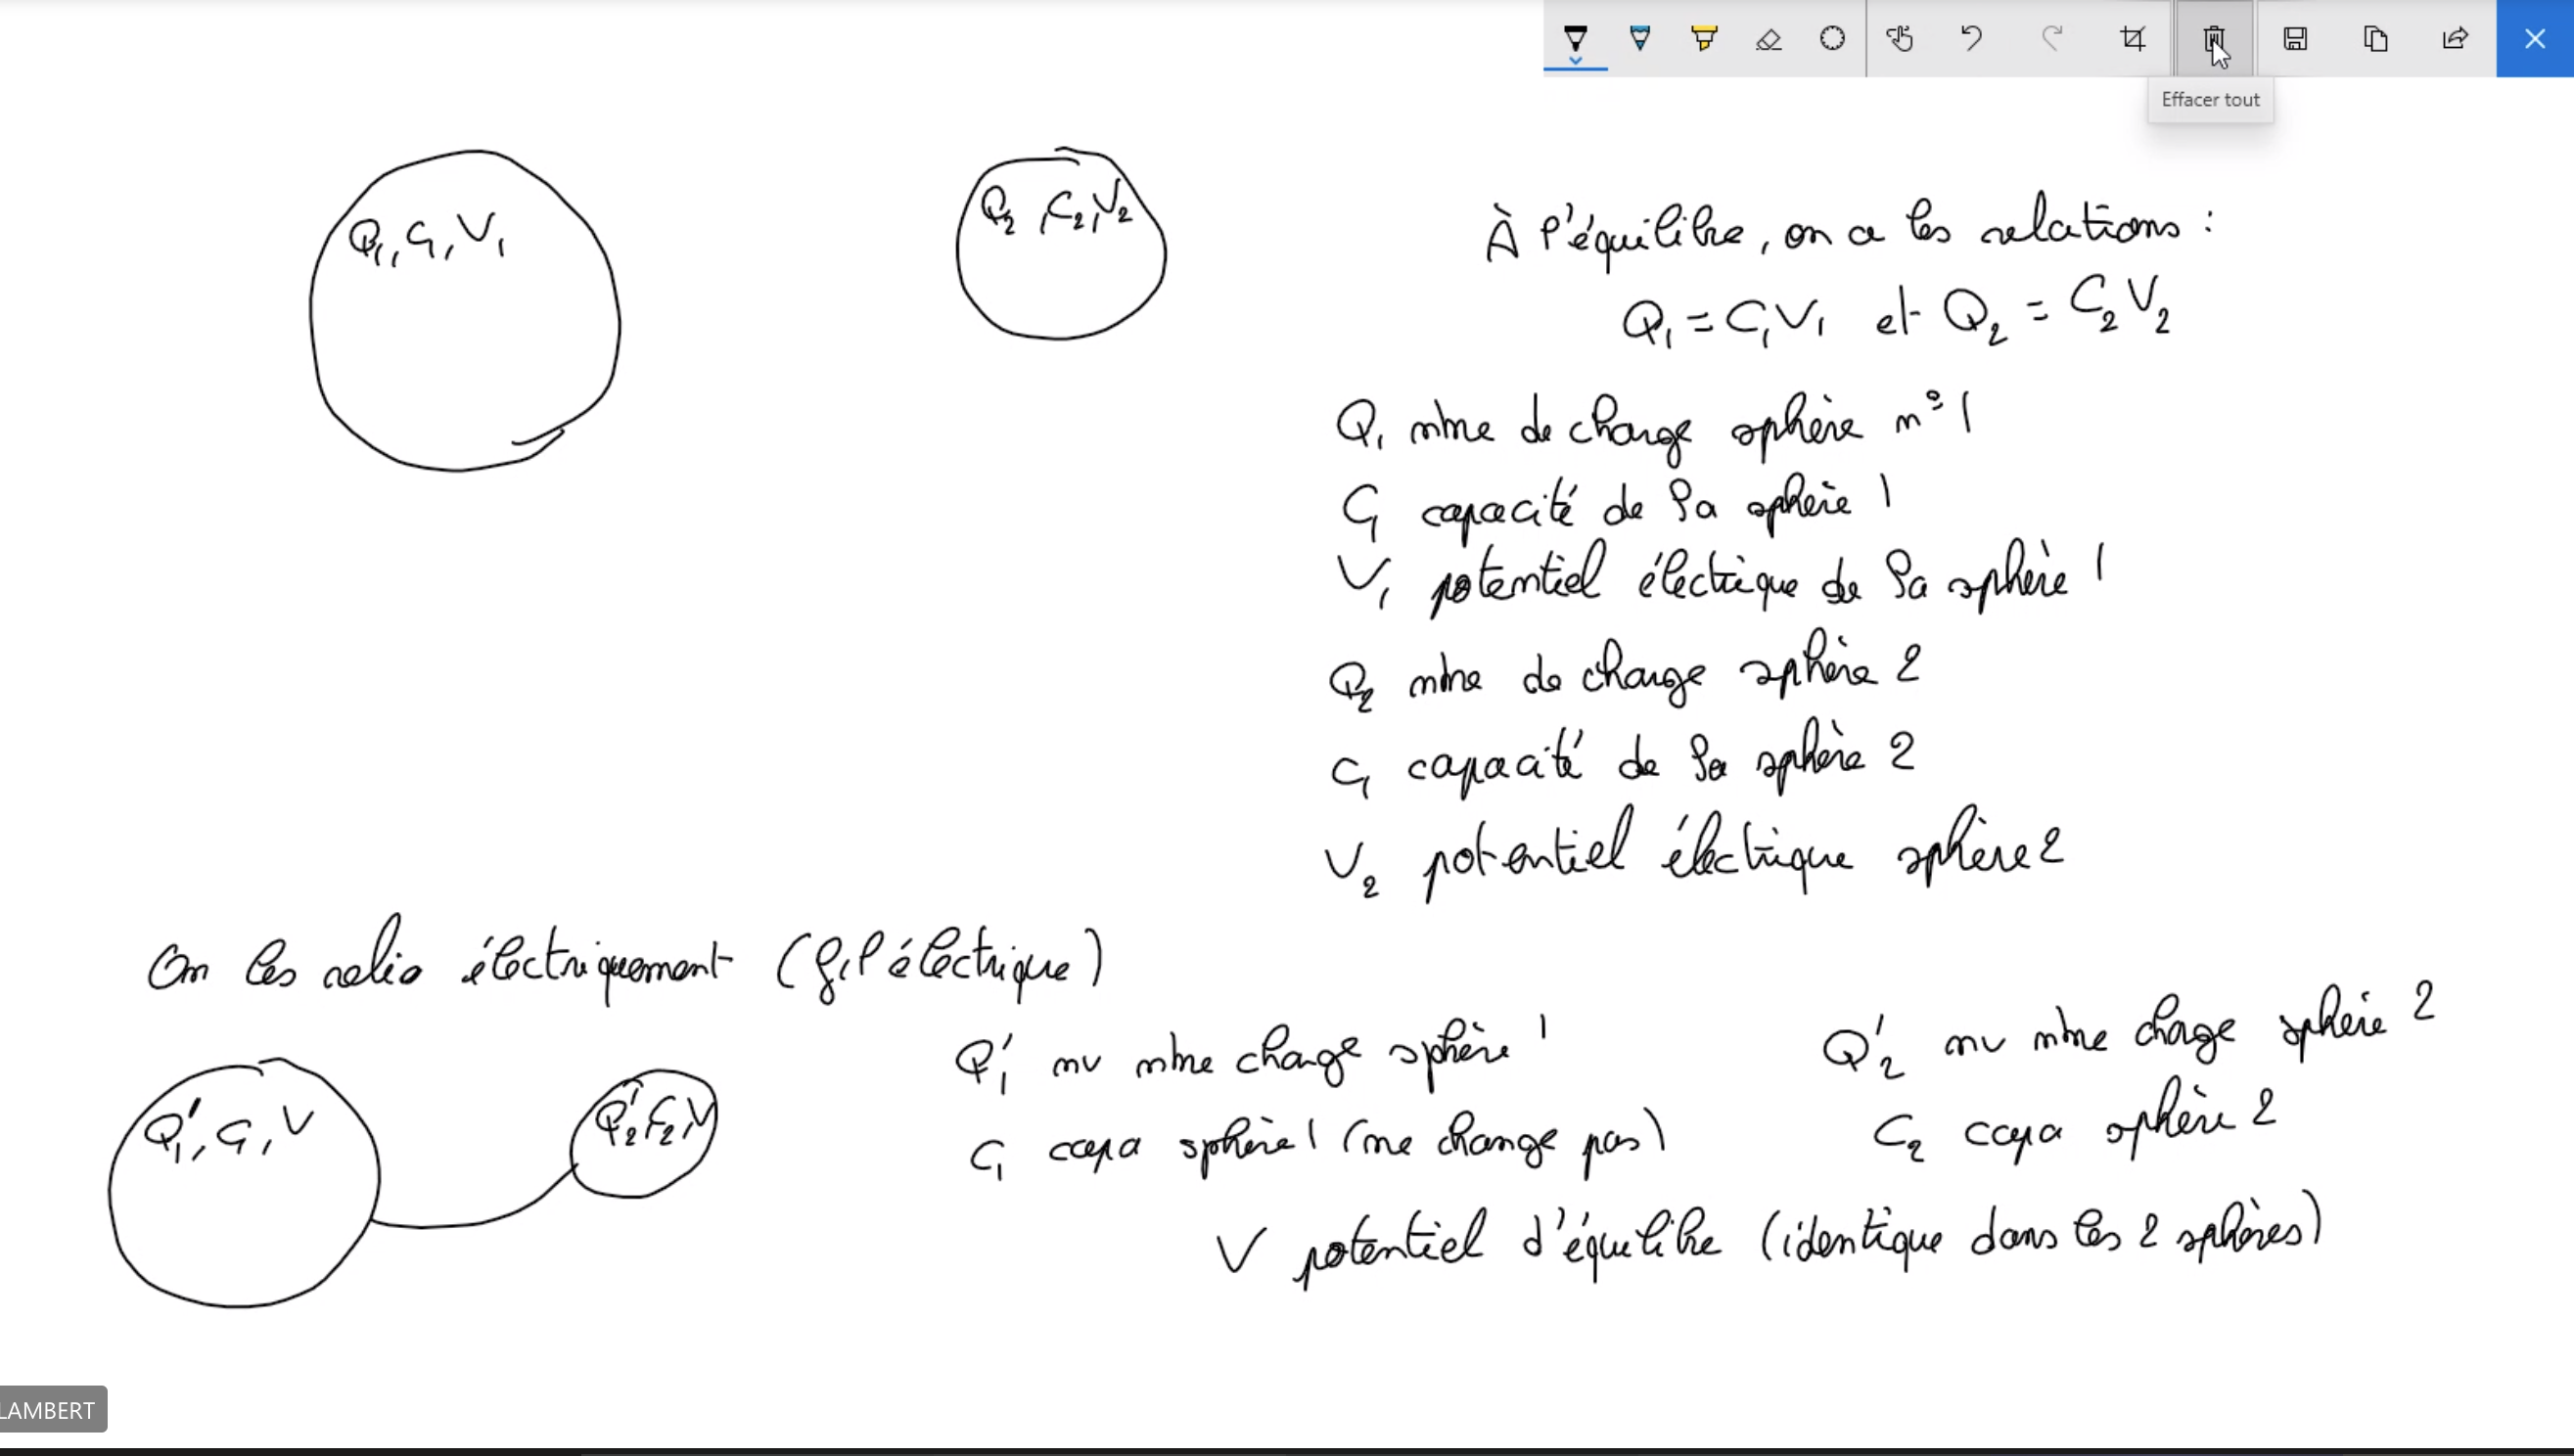 Effacer tout
Q₁, C₁, V₁
Q₂, C₂, V₂
À l'équilibre, on a les relations :
Q₁ = C₁V₁ et Q₂ = C₂V₂
Q₁ nbre de charge sphère n° 1
C₁ capacité de la sphère 1
V₁ potentiel électrique de la sphère 1
Q₂ nbre de charge sphère 2
C₁ capacité de la sphère 2
V₂ potentiel électrique sphère 2
On les relie électriquement (fil électrique)
Q'₁, C₁, V
Q'₂, C₂, V
Q'₁ nv nbre charge sphère 1
Q'₂ nv nbre charge sphère 2
C₁ capa sphère 1 (ne change pas)
C₂ capa sphère 2
V potentiel d'équilibre (identique dans les 2 sphères)
LAMBERT